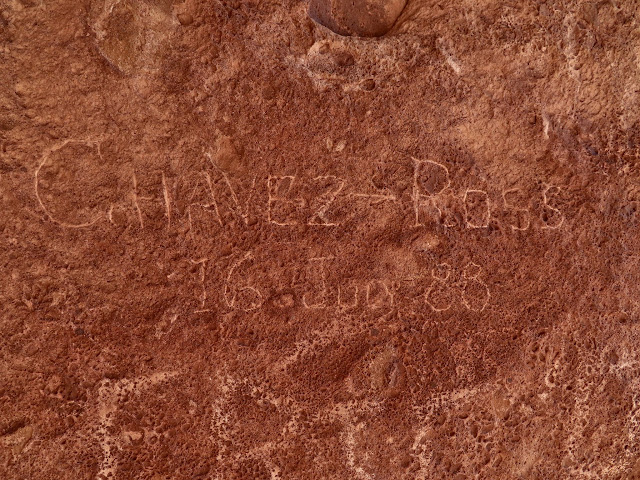 CHAVEZ-ROSS
16 JUN 88